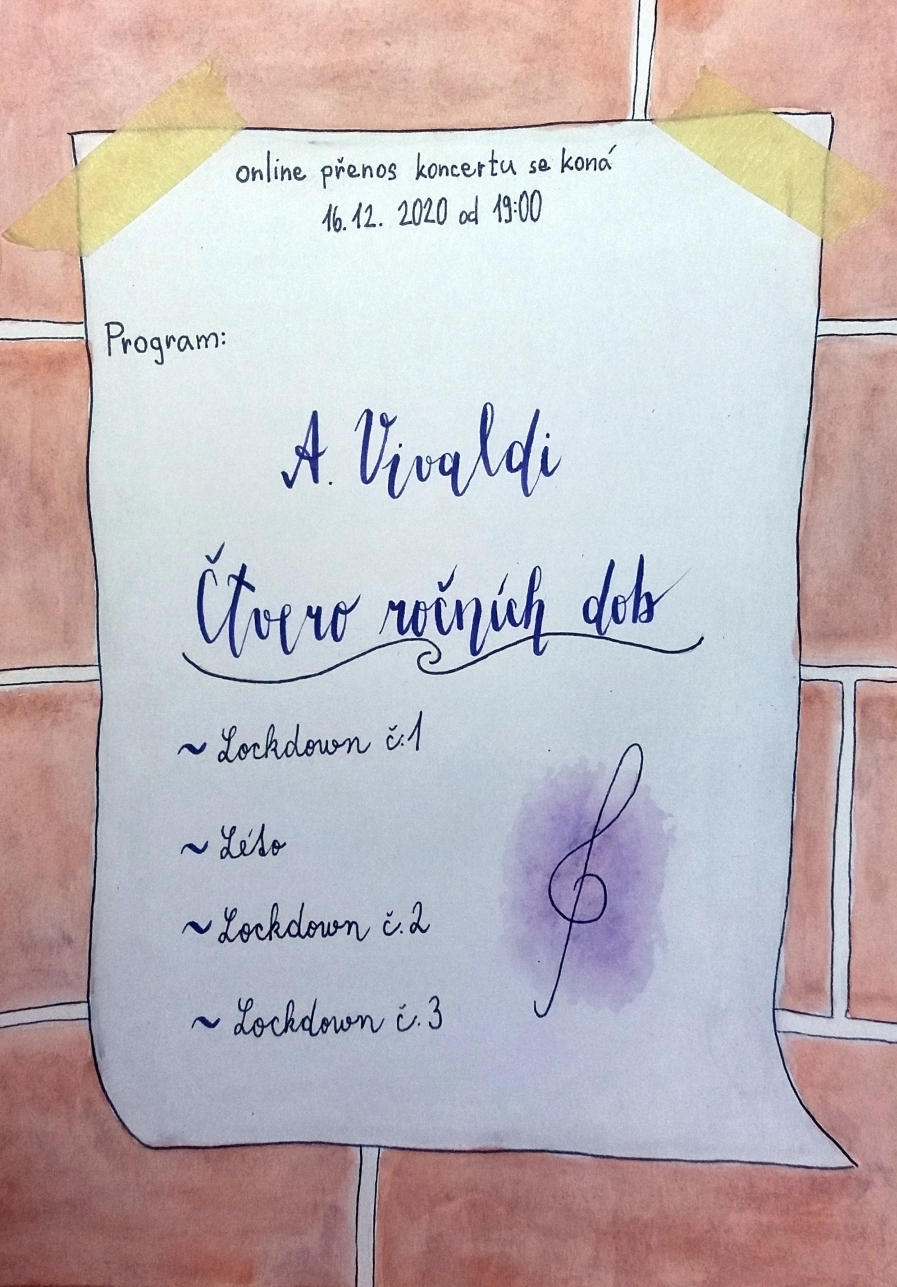 online přenos koncertu se koná
16.12. 2020 od 19:00
Program:
A. Vivaldi
Čtvero ročních dob
~ Lockdown č.1
~ Léto
~ Lockdown č.2
~ Lockdown č.3